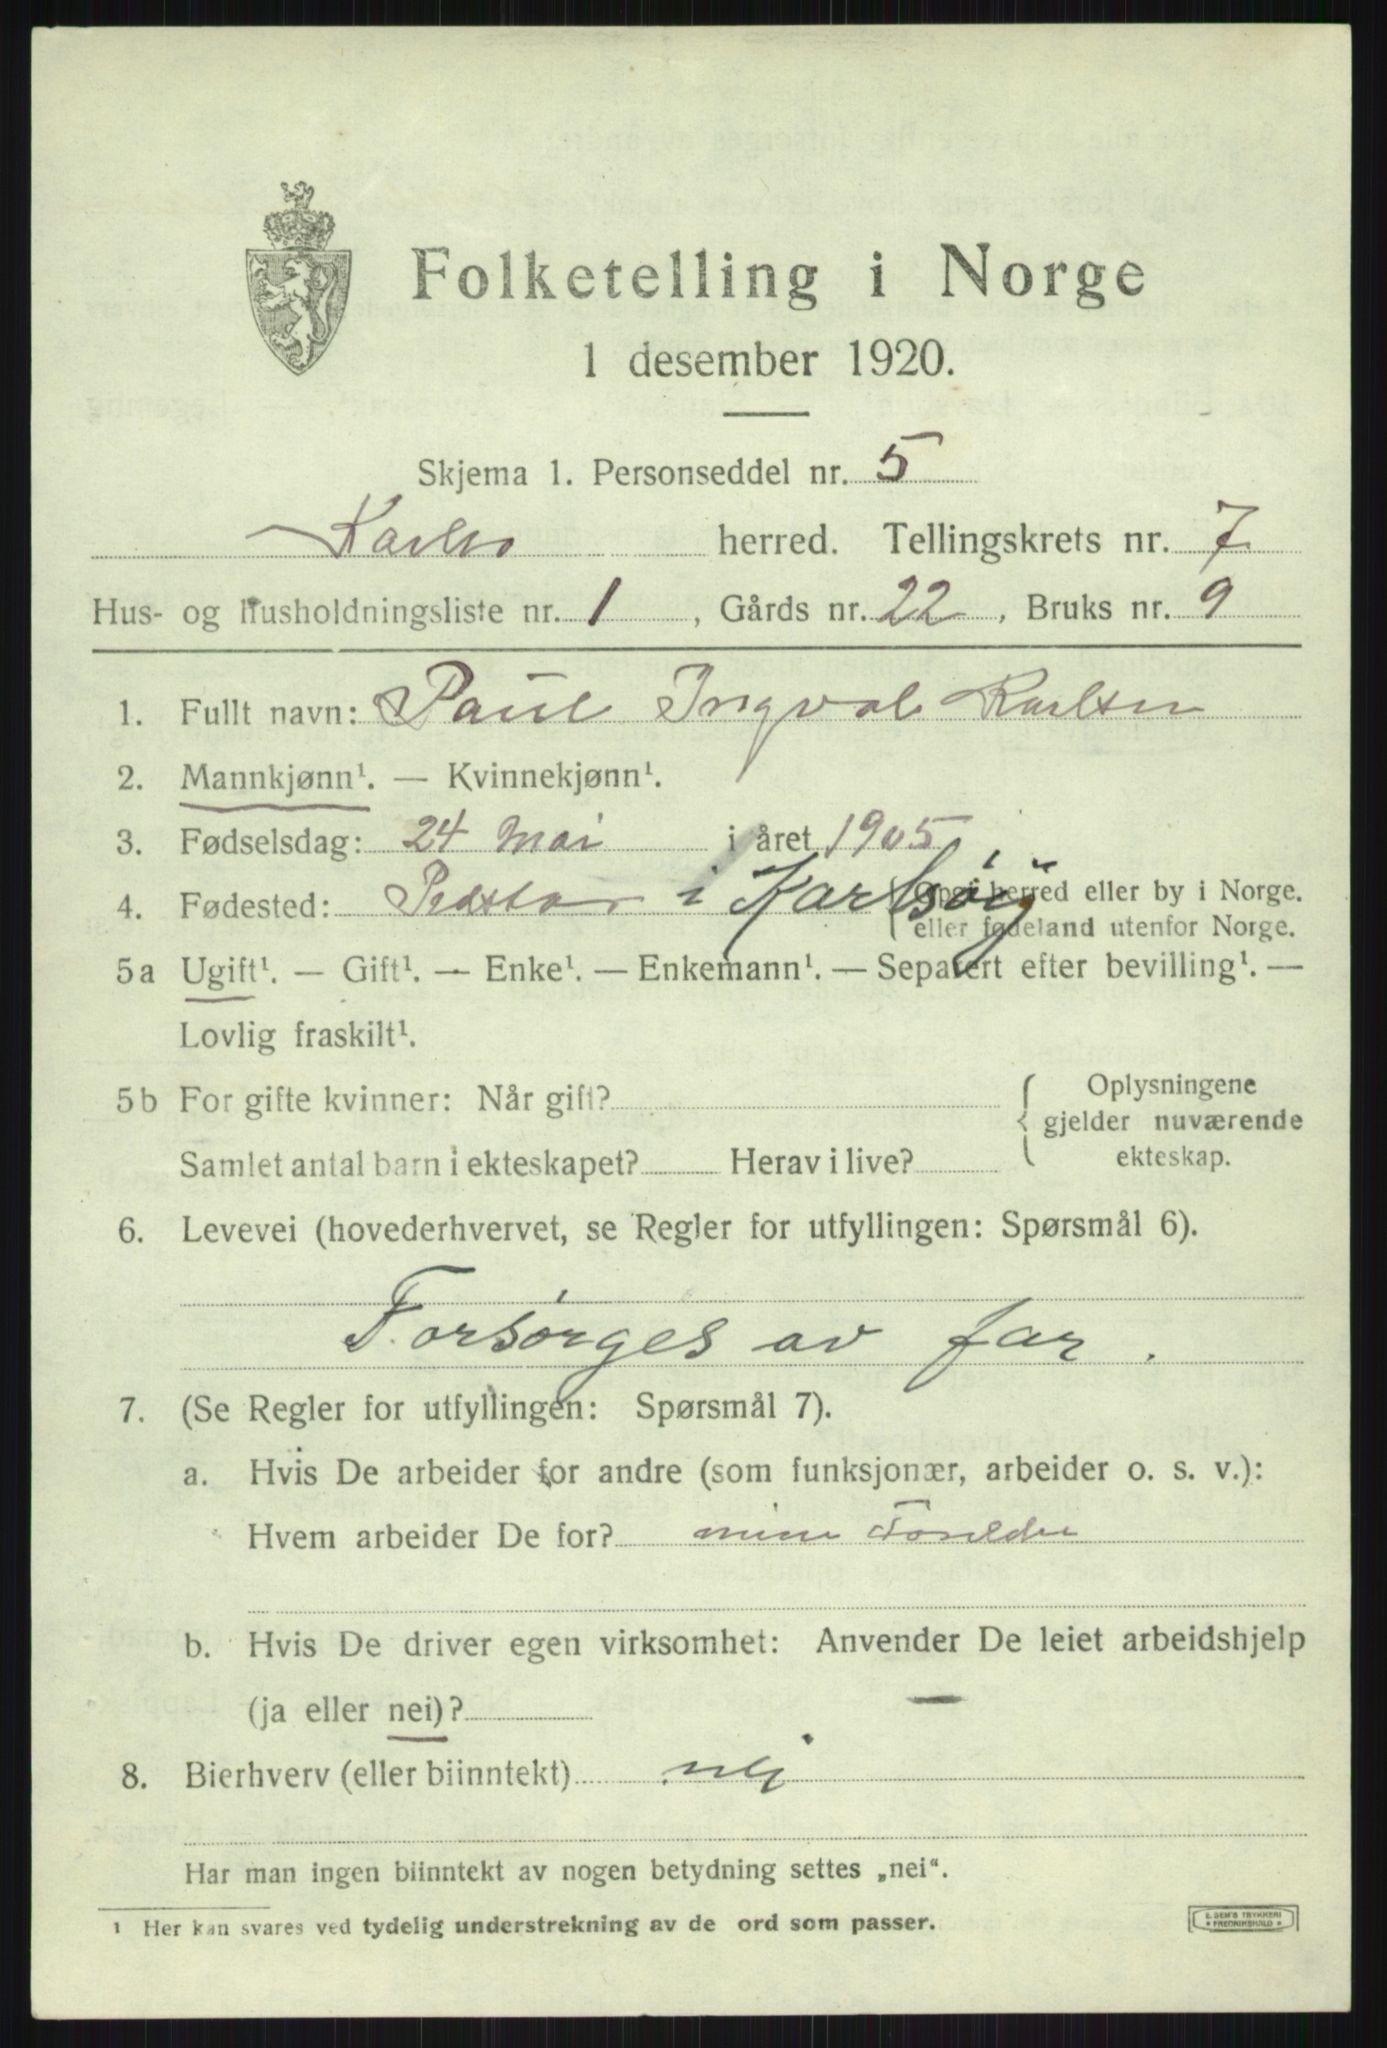 Folketelling i Norge
1 desember 1920.
Skjema 1. Personseddel nr. 5
Karlsø herred. Tellingskrets nr. 7
Hus- og husholdningsliste nr. 1, Gårds nr. 22, Bruks nr. 9
1. Fullt navn: Paul Ingval Karlsen
2. Mannkjønn¹. — Kvinnekjønn¹.
3. Fødselsdag: 24 Mai i året 1905
4. Fødested: i Karlsøy (Opgi herred eller by i Norge.
eller fødeland utenfor Norge.
5a Ugift¹. — Gift¹. — Enke¹. — Enkemann¹. — Separert efter bevilling¹. —
Lovlig fraskilt¹.
5b For gifte kvinner: Når gift? Oplysningene
gjelder nuværende
Samlet antal barn i ekteskapet? Herav i live? ekteskap.
6. Levevei (hovederhvervet, se Regler for utfyllingen: Spørsmål 6).
Forsørges av far.
7. (Se Regler for utfyllingen: Spørsmål 7).
a. Hvis De arbeider for andre (som funksjonær, arbeider o. s. v.):
Hvem arbeider De for? mine Forelder
b. Hvis De driver egen virksomhet: Anvender De leiet arbeidshjelp
(ja eller nei)? —
8. Bierhverv (eller biinntekt) nei
Har man ingen biinntekt av nogen betydning settes „nei“.
¹ Her kan svares ved tydelig understrekning av de ord som passer.
E. SEM'S TRYKKERI
FREDRIKSHALD